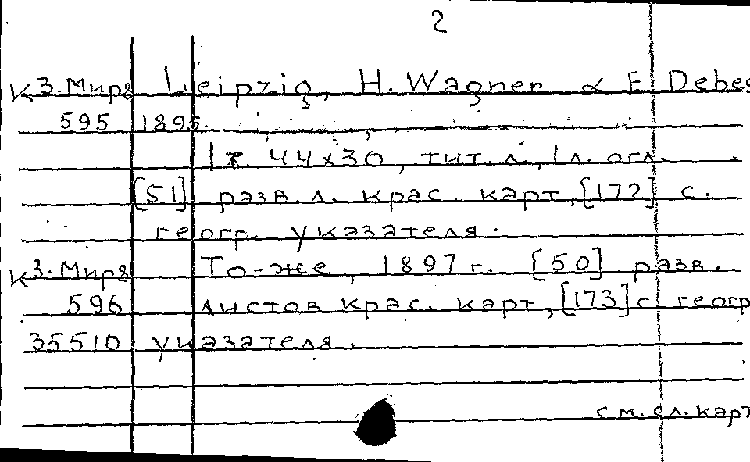 2
К3.Мира Leipzig, H. Wagner & E. Debes
595 1895
1г 44х30, тит.л., 1л. огл.
[51] разв. л. крас. карт, [172] с.
геогр. указателя.
К3.Мира То-же, 1897 г. [50] разв.
596 листов крас. карт, [173] с геогр
35510 указателя.
см.сл.карт